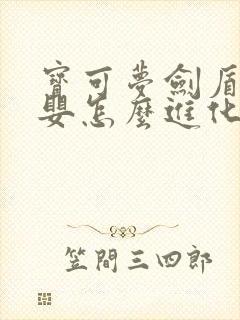 寶可夢劍盾
嬰怎麼進化
笠間三四郎